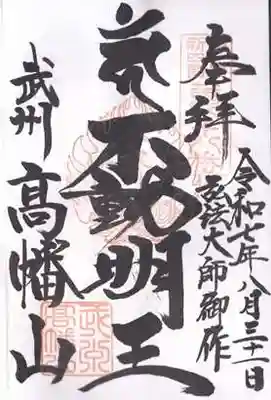 奉拝
令和七年八月三十一日
弘法大師御作
不動明王
武州
高幡山